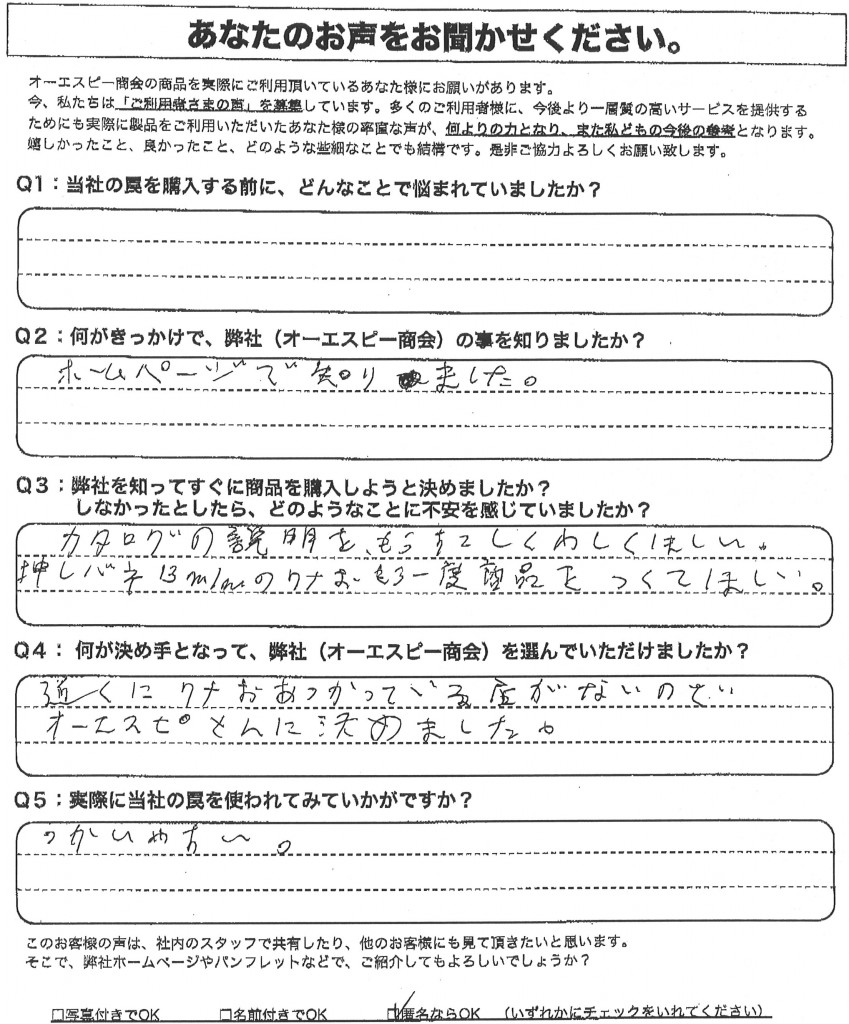 あなたのお声をお聞かせください。
オーエスピー商会の商品を実際にご利用頂いているあなた様にお願いがあります。
今、私たちは「ご利用者さまの声」を募集しています。多くのご利用者様に、今後より一層質の高いサービスを提供する
ためにも実際に製品をご利用いただいたあなた様の率直な声が、何よりの力となり、また私どもの今後の参考となります。
嬉しかったこと、良かったこと、どのような些細なことでも結構です。是非ご協力よろしくお願い致します。
Q1：当社の罠を購入する前に、どんなことで悩まれていましたか？
Q2：何がきっかけで、弊社（オーエスピー商会）の事を知りましたか？
ホームページで知りました。
Q3：弊社を知ってすぐに商品を購入しようと決めましたか？
しなかったとしたら、どのようなことに不安を感じていましたか？
カタログの説明を、もうすこしくわしくほしい。
押しバネ13m/mのワナお、もう一度商品をつくてほしい。
Q4： 何が決め手となって、弊社（オーエスピー商会）を選んでいただけましたか？
近くにワナおあつかっている店がないので
オーエスピさんに決めました。
Q5：実際に当社の罠を使われてみていかがですか？
つかいやすい。
このお客様の声は、社内のスタッフで共有したり、他のお客様にも見て頂きたいと思います。
そこで、弊社ホームページやパンフレットなどで、ご紹介してもよろしいでしょうか？
□写真付きでOK □名前付きでOK ☑匿名ならOK （いずれかにチェックをいれてください）